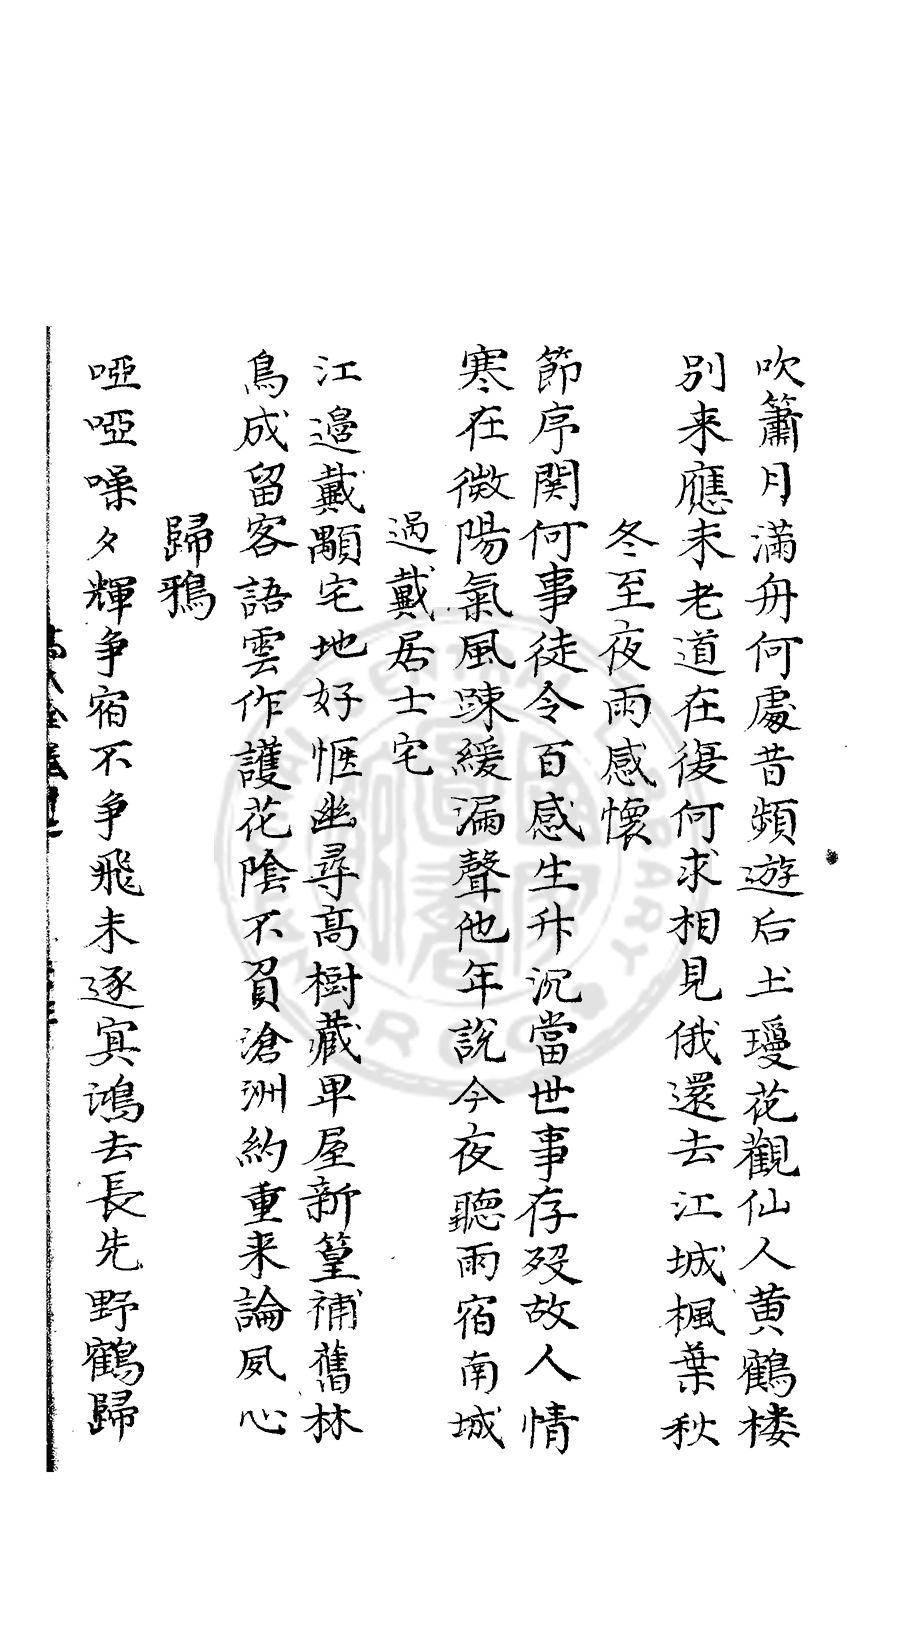 吹簫月滿舟何處昔頻遊后土瓊花觀仙人黄鶴楼
別来應未老道在復何求相見俄還去江城楓葉秋
冬至夜雨感懷
節序関何事徒令百感生升沉當世事存歿故人情
寒在微陽氣風踈緩漏聲他年說今夜聽雨宿南城
過戴居士宅
江邉戴顒宅地好愜幽尋髙樹藏卑屋新篁補舊林
鳥成留客語雲作護花陰不負滄洲約重来論夙心
歸鴉
啞啞噪夕輝争宿不争飛未逐冥鴻去長先野鶴歸